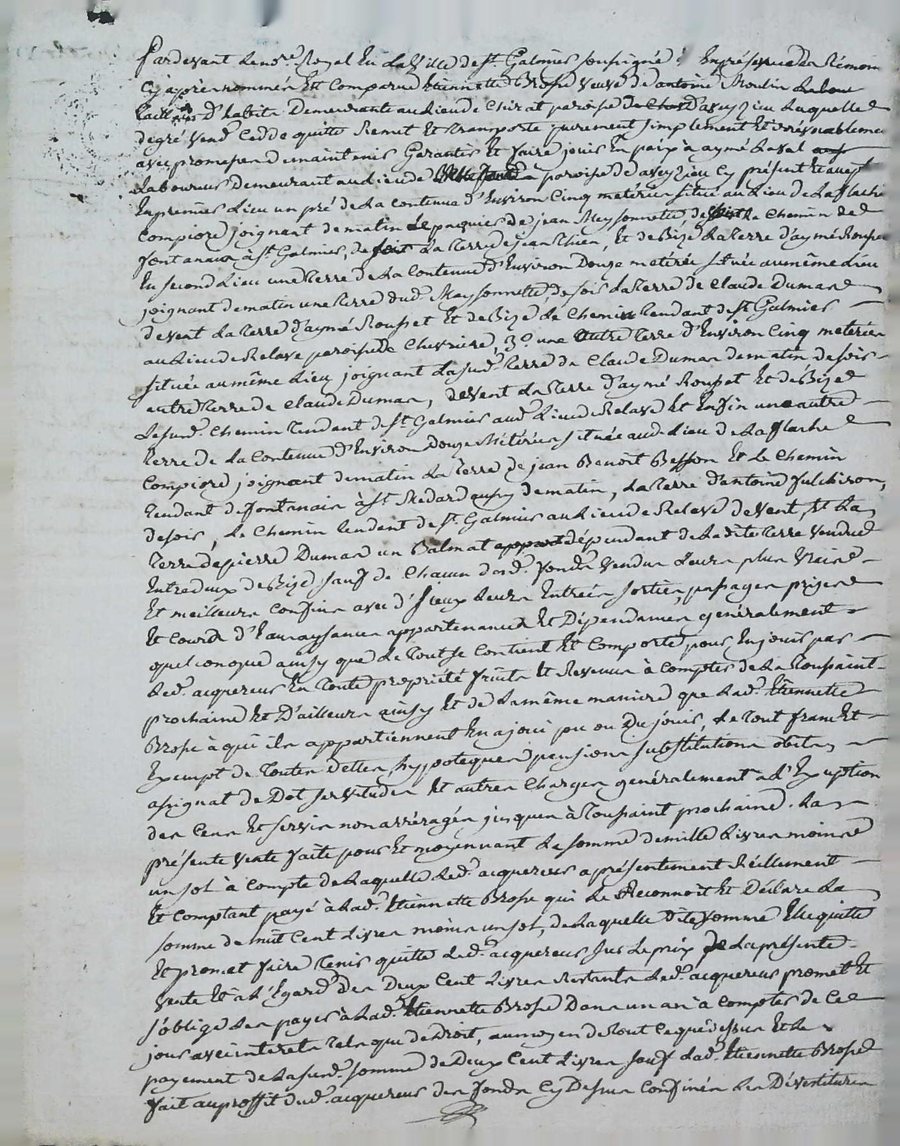 Pardevant le no.re Royal En la Ville de St. Galmier soussigné : En présence des témoins
Cy après nommés Est Comparue Etiennette Brosse Veuve de antoine Moulin Labou
d'habita Demeurante au lieu de Chirat paroisse de aveyzieu Laquelle
de gré Vend Cedde quitte Remet Et transporte purement simplement Et irrévocablement
avec promesse de maintenir Garantir Et faire jouir En paix à aymé Laval
Laboureur demeurant au lieu de paroisse de aveyzieu Cy présent Et accept
En premier Lieu un pré de la Contenue d'Environ Cinq metérée située au Lieu de La flache
Compiore joignant de matin Le paquier de jean Meysonnette de Le Chemin de
fontanaix à St. Galmier, de soir La terre de jean thien, Et de Bize La terre d'aymé Rousset
En second Lieu une terre de La Contenue d'Environ Douze metérée située au même Lieu
joignant de matin une terre dud. Meysonnette, de soir La terre de Claude Dumas
de vent La terre d'aymé Rousset Et de Bize Le Chemin tendant de St. Galmier
au Lieu de Relave paroisse de Chevrière, 3.o une autre terre d'Environ Cinq metérée
située au même Lieu joignant La sud. terre de Claude Dumas de matin de soir
autre terre de Claude Dumas, de Vent La terre d'aymé Rousset Et de Bize
Le sud. Chemin tendant de St. Galmier aud. Lieu de Relave Et Enfin une autre
terre de la Contenue d'Environ Douze Métérées située aud. Lieu de La flache
Compiore joignant de matin La terre de jean Benoit Besson Et Le Chemin
tendant de fontanaix à St. Medard aussy de matin, La terre d'antoine fulchiron,
de soir, Le Chemin tendant de St. Galmier au Lieu de Relave de Vent, Et La
terre de pierre Dumas un Balmat dépendant de La dite terre Vendue
Entre deux de Bize sauf de Chacun desd. fonds Vendus Leurs plus Vrais
Et meilleurs Confins avec d'Iceux Leurs Entrées sorties, passages prises
Et Cours d'Eau aysances appartenances Et Dépendances généralement
quelconque ainsy que Le tout se Contient Et Comporte, pour En jouir par
Led. acquereur En toute propriété fruits Et Revenus à Compter de La toussaint
prochaine Et D'ailleurs ainsy Et de La même maniere que Lad. Etiennette
Brosse à qui ils appartiennent En a joui pu ou Du jouir, Le tout franc Et
Exempt de toutes dettes, hypoteques pensions substitutions obits
assignat de Dot servitudes Et autres Charges généralement a L'Exeption
des Cens Et servis non arréragés jusques à toussaint prochaine. La
présente Vente faite pour Et moyennant La somme de mille Livres moins
un sol à Compte de Laquelle Led. acquereur a présentement Réellement
Et Comptant payé à Lad. Etiennette Brosse qui Le Reconnoit Et Déclare La
somme de huit Cent Livres moins un sol, de Laquelle Dite somme Elle quitte
Et promet faire tenir quitte Led. acquereur sur Le prix De La présente
Vente Et à L'Egard Des Deux Cent Livres Restants Led. acquereur promet Et
s'oblige Les payer à Lad. Etiennette Brosse Dans un an à Compter de Ce
jour avec interets tels que de Droit, au moyen de tout Ce que dessus Et Le
payement de La sud. somme de Deux Cent Livres sauf Lad. Etiennette Brosse
fait au proffit dud. acquereur des fonds Cy Dessus Confinés Les Dévestitures